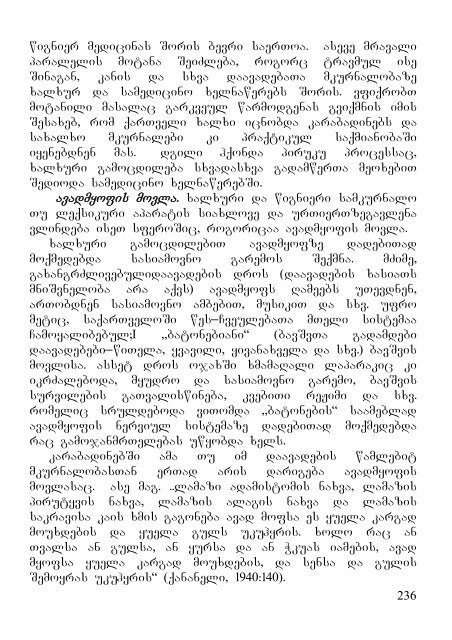 წიგნიერ მედიცინას შორის ბევრი საერთოა. ასევე მრავალი
პარალელის მოტანა შეიძლება, როგორც ტრავმულ ისე
შინაგან, კანის და სხვა დაავადებათა მკურნალობაზე
ხალხურ და სამედიცინო ხელნაწერებს შორის. ვფიქრობთ
მოტანილი მასალაც გარკვეულ წარმოდგენას გვიქმნის იმის
შესახებ, რომ ქართველი ხალხი იცნობდა კარაბადინებს და
სახალხო მკურნალები კი პრაქტიკულ საქმიანობაში
იყენებდნენ მას. დგილი ჰქონდა პირუკუ პროცესსაც,
ხალხური გამოცდილება სხვადასხვა გადამწერთა მეოხებით
შედიოდა სამედიცინო ხელნაწერებში.
ავადმყოფის მოვლა. ხალხური და წიგნიერი სამკურნალო
თუ ლექსიკური აპარატის სიახლოვე და ურთიერთზეგავლენა
ვლინდება ისეთ სფეროშიც, როგორიცაა ავადმყოფის მოვლა.
ხალხური გამოცდილებით ავადმყოფზე დადებითად
მოქმედებდა სასიამოვნო გარემოს შექმნა. მძიმე,
გახანგრძლივებულიდაავადების დროს (დაავადების ხასიათს
მნიშვნელობა არა აქვს) ავადმყოფს ღამეებს უთევდნენ,
ართობდნენ სასიამოვნო ამბებით, მუსიკით და სხვ. უფრო
მეტიც, საქართველოში წეს–ჩვეულებათა მთელი სისტემაა
ჩამოყალიბებულ;I „ბატონებიანი“ (ბავშვთა გადამდები
დაავადებები–წითელა, ყვავილი, ყივანახველა და სხვ.) ბავშვის
მოვლისა. ასსეტ დროს ოჯახში ხმამაღალი ლაპარაკიც კი
იკრძალებოდა, მყუდრო და სასიამოვნო გარემო, ბავშვის
სურვილების გათვალისწინება, კვებითი რეჟიმი და სხვ.
რომელიც სრულდებოდა ვითომდა „ბატონების“ საამებლად
ავადმყოფის ნერვიულ სისტემაზე დადებითად მოქმედებდა
რაც გამოჯანმრთელებას უწყობდა ხელს.
კარაბადინებში ამა თუ იმ დაავადების წამლებით
მკურნალობასთან ერთად არის დარიგება ავადმყოფის
მოვლასაც. ასე მაგ. „ლამაზი ადამისტომის ნახვა, ლამაზის
პირუტყვის ნახვა, ლამაზის ალაგის ნახვა და ლამაზის
საკრავისა კაის ხმის გაგონება ავად მოფსა ეს ყუელა კარგად
მოუხდების და ყუელა გულს უკუჰყრის. ხოლო რაც ან
თვალსა ან გულსა, ან ყურსა და ან ჭკუას იამების, ავად
მყოფსა ყუელა კარგად მოუხდების, და სენსა და გულის
შემოყრას უკუჰყრის“ (ქანანელი, 1940:140).
236